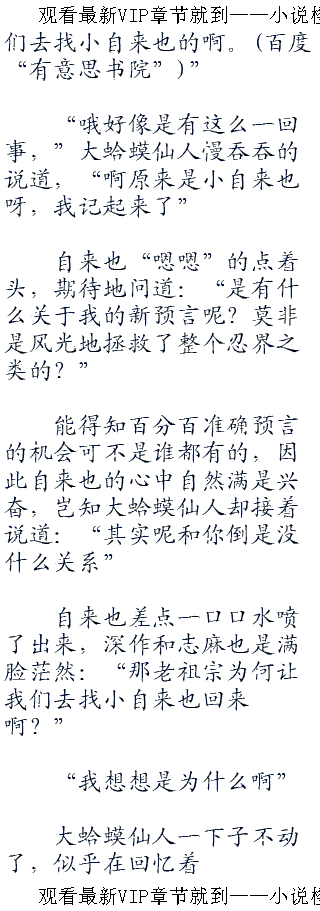 观看最新VIP章节就到——小说楼
们去找小自来也的啊。(百度
“有意思书院”)”
“哦好像是有这么一回
事，”大蛤蟆仙人慢吞吞的
说道，“啊原来是小自来也
呀，我记起来了”
自来也“嗯嗯”的点着
头，期待地问道：“是有什
么关于我的新预言呢？莫非
是风光地拯救了整个忍界之
类的？”
能得知百分百准确预言
的机会可不是谁都有的，因
此自来也的心中自然满是兴
奋，岂知大蛤蟆仙人却接着
说道：“其实呢和你倒是没
什么关系”
自来也差点一口口水喷
了出来，深作和志麻也是满
脸茫然：“那老祖宗为何让
我们去找小自来也回来
啊？”
“我想想是为什么啊”
大蛤蟆仙人一下子不动
了，似乎在回忆着
观看最新VIP章节就到——小说